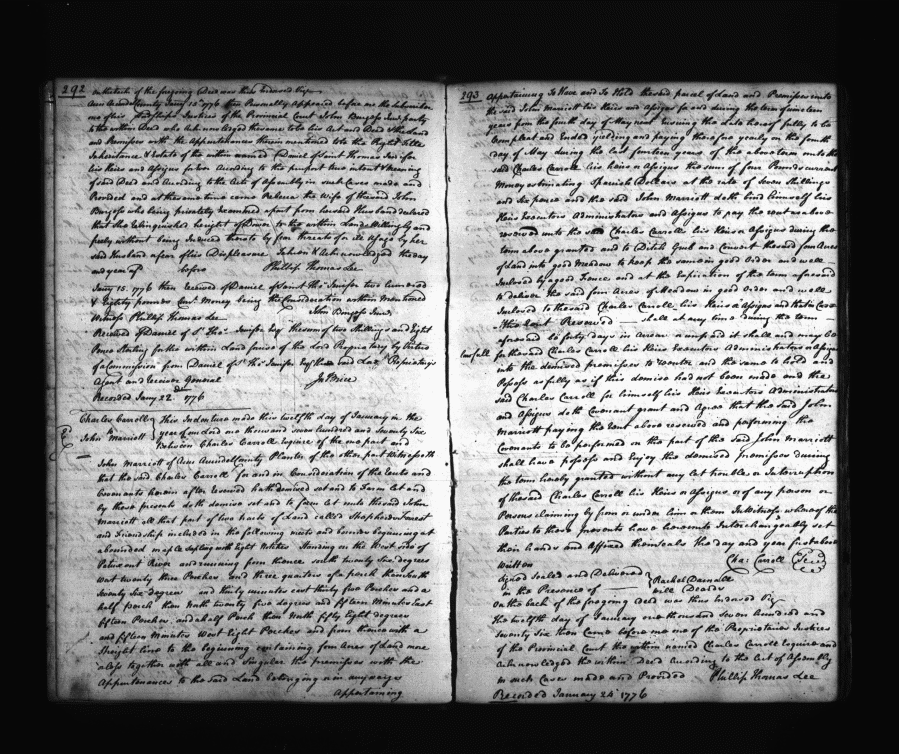 292
on the back of the foregoing Deed was thus Indorsed Viz
Ann Arundel County Janry 15th 1776 then Personally Appeared before me the Subscriber
one of his Lordships Justices of the Provincial Court John Burgess Junr party
to the within Deed who acknowledged the same to be his Act and Deed & the Land
and Premises with the Appurtenances therein mentioned to be the Right Title
Inheritance & Estate of the within named Daniel of Saint Thomas Jenifer
his Heirs and Assigns for ever According to the purport true intent & Meaning
of said Deed and According to the Acts of Assembly in such Cases made and
Provided and at the same time came the Wife of the said John
Burgess who being privately examined apart from her said Husband declared
that she relinquished her right of Dower to the within Land Willingly and
freely without being Induced thereto by fear threats or ill usage by her
said Husband or fear of his Displeasure Taken & Acknowledged the day
and year of before Phillip Thomas Lee
Janry 15. 1776 then received of Daniel of Saint Thos Jenifer two hundred
& Eighty pounds Curt Money being the Consideration within Mentioned
Witness Phillip Thomas Lee John Burgess Junr
Received of Daniel of St Thos Jenifer Esqr the sum of two Shillings and Eight
Pence Sterling for the within Land for use of the Lord Proprietary by Virtue
of a Commission from Daniel of St Thos Jenifer Esqr said Lord Proprietary's
Agent and receiver General Jno Brice
Recorded Janry 22d 1776
Charles Carroll
John Marriott
This Indenture made this twelfth day of January in the
year of our Lord one thousand seven hundred and Seventy Six
Between Charles Carroll Esquire of the one part and
John Marriott of Ann Arundel County Planter of the other part Witnesseth
that the said Charles Carroll for and in Consideration of the rents and
Covenants herein after reserved hath demised set and to Farm Let and
by these presents doth demise set and to farm let unto the said John
Marriott all that part of two tracts of Land called Shepherds Forrest
and Friendship included in the following meets and bounds beginning at
a bounded maple Sapling with Eight Notches Standing on the West side of
Patuxent River and running from thence south twenty Six degrees
West twenty three Perches and three quarters of a perch then South
Seventy Six degrees and thirty minutes East thirty five Perches and a
half perch then North twenty five degrees and fifteen Minutes East
fifteen Perches, and a half Perch then North fifty Eight degrees
and fifteen Minutes West Eight Perches and from thence with a
Straight line to the beginning containing four Acres of Land more
or less together with all and Singular the premises with the
Appurtenances to the said Land belonging or in any ways
Appertaining
293
Appertaining To Have and To Hold the said parcel of Land and Premises unto
the said John Marriott his Heirs and Assigns for and during the term of
years from the fourth day of May next ensuing the date hereof fully to be
Compleat and Ended yielding and paying therefore yearly on the fourth
day of May during the last fourteen years of the above term unto the
said Charles Carroll his heirs or Assigns the sum of four Pounds current
Money estimating Spanish Dollars at the rate of Seven Shillings
and Six pence and the said John Marriott doth bind himself his
Heirs Executors Administrators and Assigns to pay the rent as above
reserved unto the said Charles Carroll his Heirs or Assigns during the
term above granted and to Ditch Grub and Convert the said four Acres
of Land into good Meadow to keep the same in good Order and well
Inclosed by a good Fence and at the Expiration of the term aforesaid
to deliver the said four Acres of Meadow in good Order and well
Inclosed to the said Charles Carroll his Heirs or Assigns and that in Case
the Rent Reserved shall at any time during the term
aforesaid be forty days in Arrear or unpaid it shall and may be
lawfull for the said Charles Carroll his Heirs Executors Administrators or Assigns
into the demised premises to reenter and the same to hold and
Possess as fully as if this demise had not been made and the
said Charles Carroll for himself his Heirs Executors Administrators
and Assigns doth Covenant grant and Agree that the said John
Marriott paying the Rent above reserved and performing the
Covenants to be performed on the part of the said John Marriott
shall have possess and Enjoy the demised Premises during
the term hereby granted without any let trouble or Interruption
of the said Charles Carroll his Heirs or Assigns or of any person or
Persons claiming by from or under him or them In Witness whereof the
Parties to these presents have hereunto Interchangeably set
their hands and Affixed their seals the day and year first above
Written Cha: Carroll (Seal)
Signed Sealed and Delivered Rachel Darnall
in the Presence of Will Deards
On the back of the foregoing deed was thus Indorsed Viz
The twelfth day of January one thousand seven hundred and
Seventy Six then Came before me one of the Proprietarys Justices
of the Provincial Court the within named Charles Carroll Esquire and
Acknowledged the within Deed According to the Act of Assembly
in such Cases made and Provided Phillip Thomas Lee
Recorded January 24th 1776